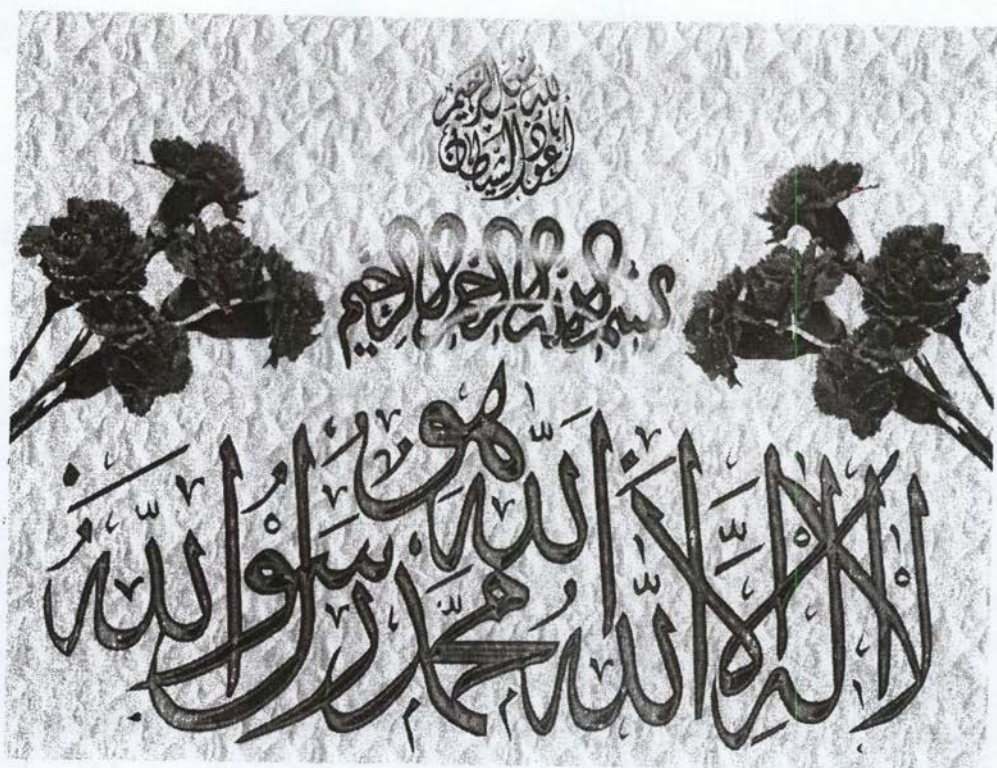 أعوذ بالله من الشيطان الرجيم
بسم الله الرحمن الرحيم
هو
الله
لا إله إلا الله محمد رسول الله